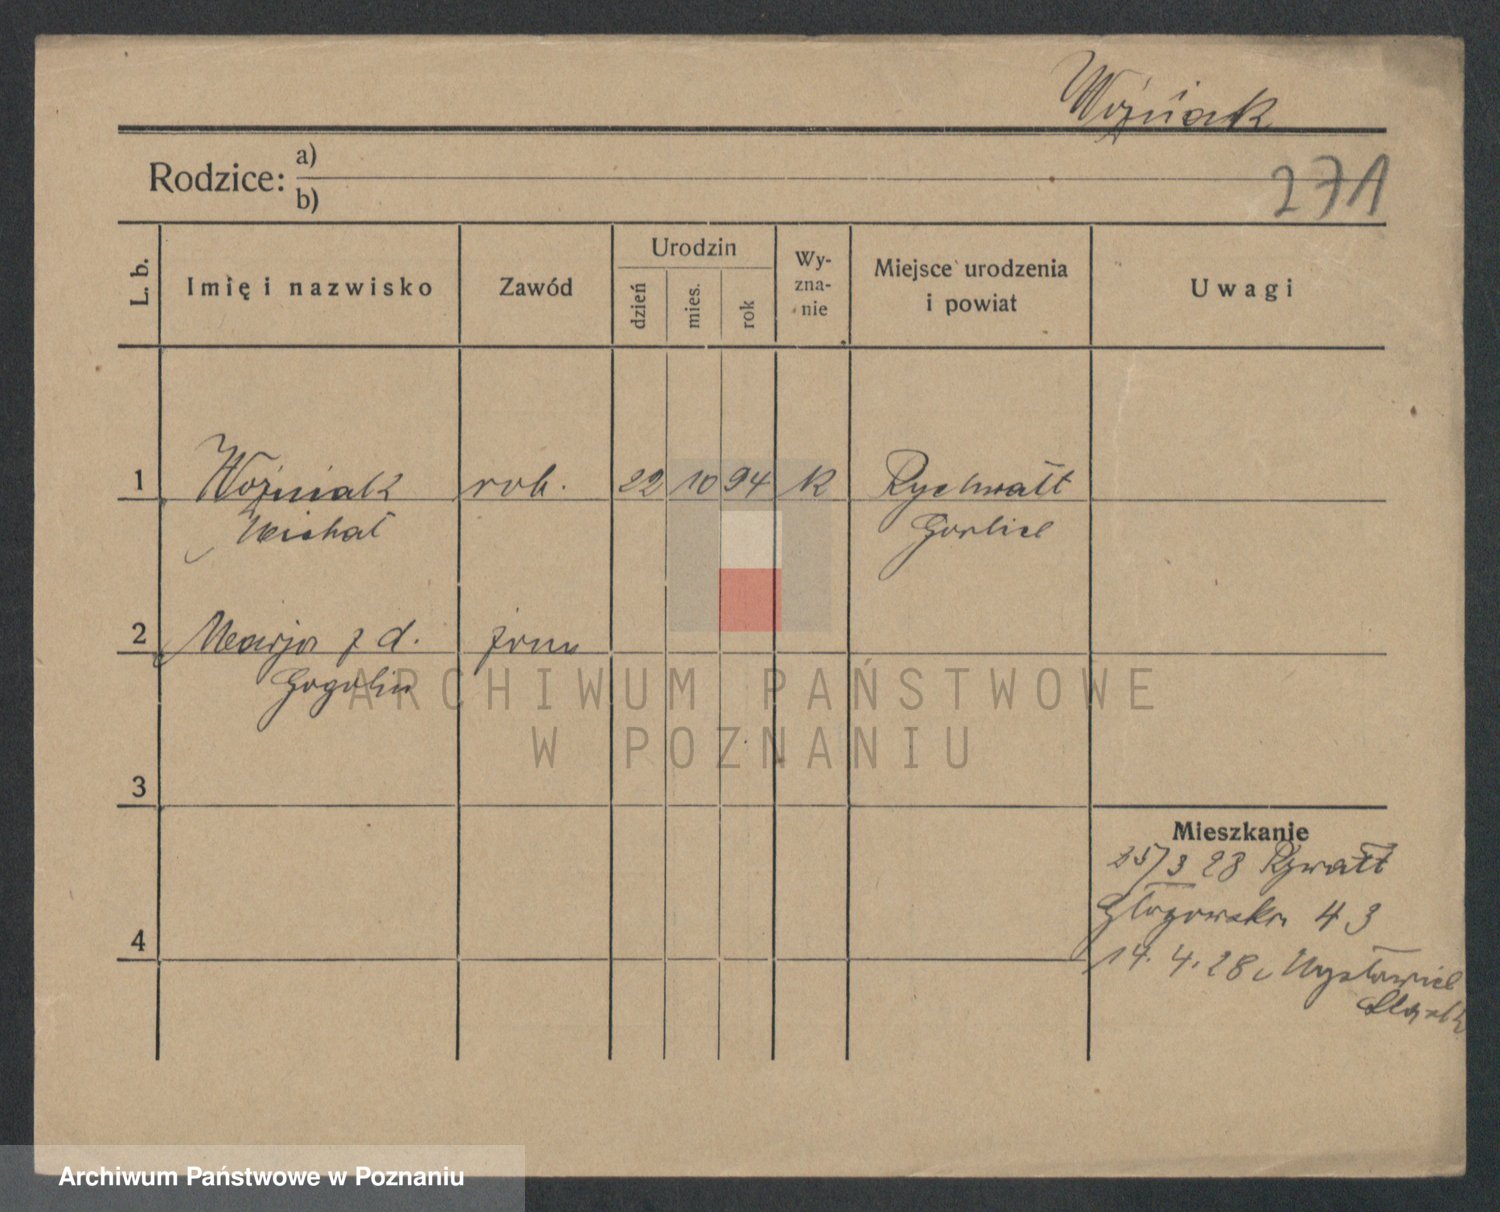 Woźniak
Rodzice: a)
b)
271
L. b.
Imię i nazwisko
Zawód
Urodzin
dzień
mies.
rok
Wy-
zna-
nie
Miejsce urodzenia
i powiat
Uwagi
1 Woźniak rob. 22 10 94 K Rychwałt
Michał Gorlice
2 Marja z d. żona
Gogolin
ARCHIWUM PAŃSTWOWE
W POZNANIU
3
Mieszkanie
25/3 28
Głogowska 43
4
14. 4. 28
Archiwum Państwowe w Poznaniu